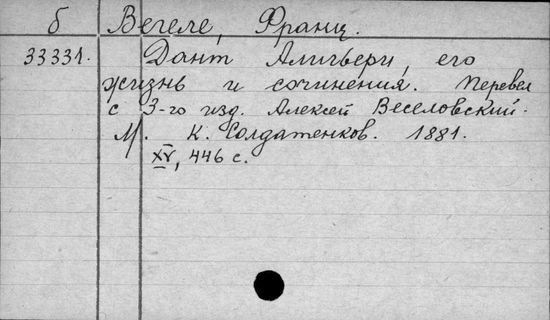 б Вегеле, Франц.
33331. Дант Алигьери, его
жизнь и сочинения. Перевел
с 3-го изд. Алексей Веселовский.
М. К. Солдатенков. 1881.
XV, 446 с.